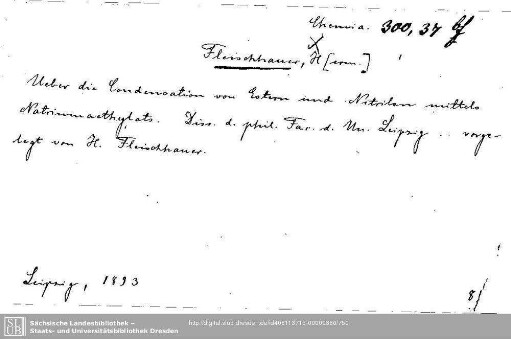 Chemia. 300, 37
Fleischhauer, H[erm.]
Ueber die Condensation von Estern und Nitrilen mittels
Natriumaethylats. Diss. d. phil. Fac. d. Un. Leipzig .. vorge-
legt von H. Fleischhauer.
Leipzig, 1893
8/
SLUB
Sächsische Landesbibliothek –
Staats- und Universitätsbibliothek Dresden